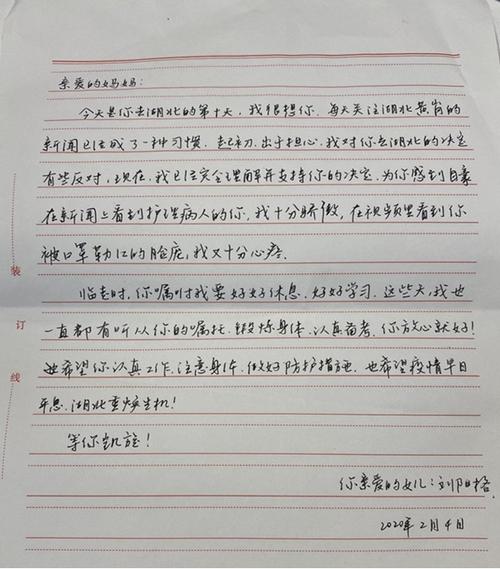 亲爱的妈妈:
今天是你去湖北的第十天,我很想你.每天关注湖北黄岗的
新闻已经成了一种习惯.起初,出于担心,我对你去湖北的决定
有些反对,现在,我已经完全理解并支持你的决定,为你感到自豪
在新闻上看到护理病人的你,我十分骄傲,在视频里看到你
被口罩勒红的脸庞,我又十分心疼.
临走时,你嘱咐我要好好休息,好好学习.这些天,我也
一直都有听从你的嘱托,锻炼身体,认真备考,你放心就好!
也希望你认真工作,注意身体,做好防护措施,也希望疫情早日
平息,湖北重焕生机!
等你凯旋!
你亲爱的女儿:刘阳格
2020年2月4日
装
订
线